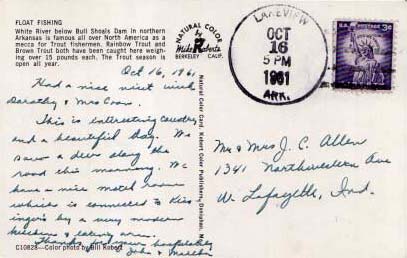 FLOAT FISHING
White River below Bull Shoals Dam in northern
Arkansas is famous all over North America as a
mecca for Trout fishermen. Rainbow Trout and
Brown Trout both have been caught here weigh-
ing over 15 pounds each. The Trout season is
open all year.
NATURAL COLOR
by
Mike Roberts
BERKELEY CALIF.
LAKEVIEW
OCT
16
5 PM
1961
ARK.
U.S. POSTAGE
3¢
Oct 16, 1961
Had a nice visit with
Dorothy & Mrs
This is interesting country
and a beautiful day. We
saw a deer along the
road this morning. We
have a nice motel room
which is connected to
by a very modern
kitchen & eating area.
Thanks for your hospitality
John & Martha
Natural Color Card, Kebert Color Publishers,
Mr & Mrs J. C. Allen
1341 Northwestern Ave
W. Lafayette, Ind.
C10828—Color photo by Bill Kebert